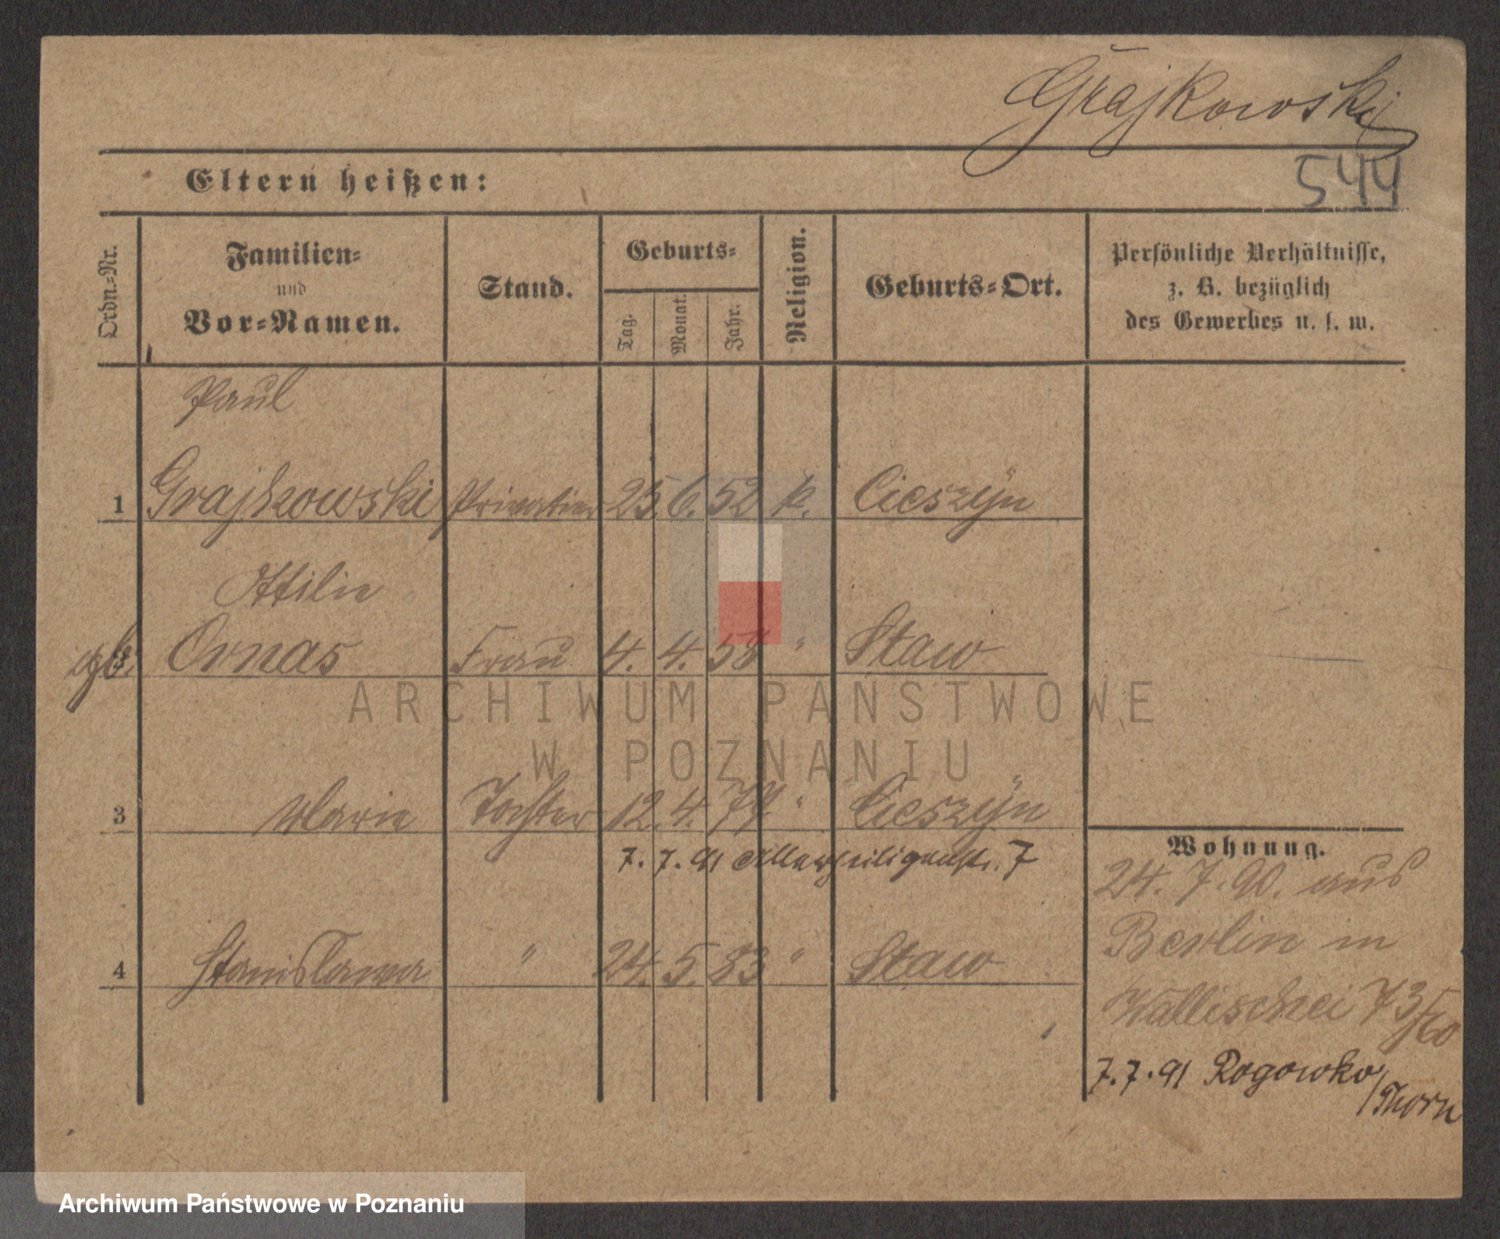 Grajkowski
544
Eltern heißen:
Ordn.-Nr.
Familien-
und
Vor-Namen.
Stand.
Geburts-
Tag.
Monat.
Jahr.
Religion.
Geburts-Ort.
Persönliche Verhältnisse,
z. B. bezüglich
des Gewerbes u. s. w.
Paul
1 Grajkowski Privatier 25. 6. 52 k. Cieszÿn
Ottilie
gb. Ornas Frau 4. 4. 58 " Staw
3 Marie Tochter 12. 4. 77. " Cieszÿn
7. 7. 91 Allerheiligenstr. 7
4 Stanislawa " 24. 5. 83 " Staw
Wohnung.
24. 7. 90. aus
Berlin in
Wallischei 73/
7. 7. 91 Rogowko/
Thorn
ARCHIWUM PAŃSTWOWE
W POZNANIU
Archiwum Państwowe w Poznaniu